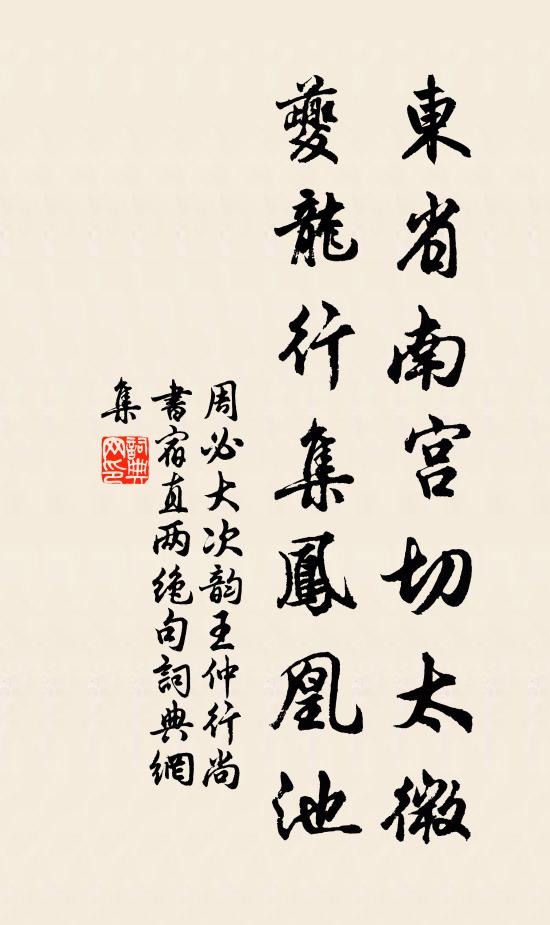 東省南宫切太微
夔龍行集鳳凰池
周必大次韵王仲行尚
書宿直两绝句詞典網
集
詞典
网印